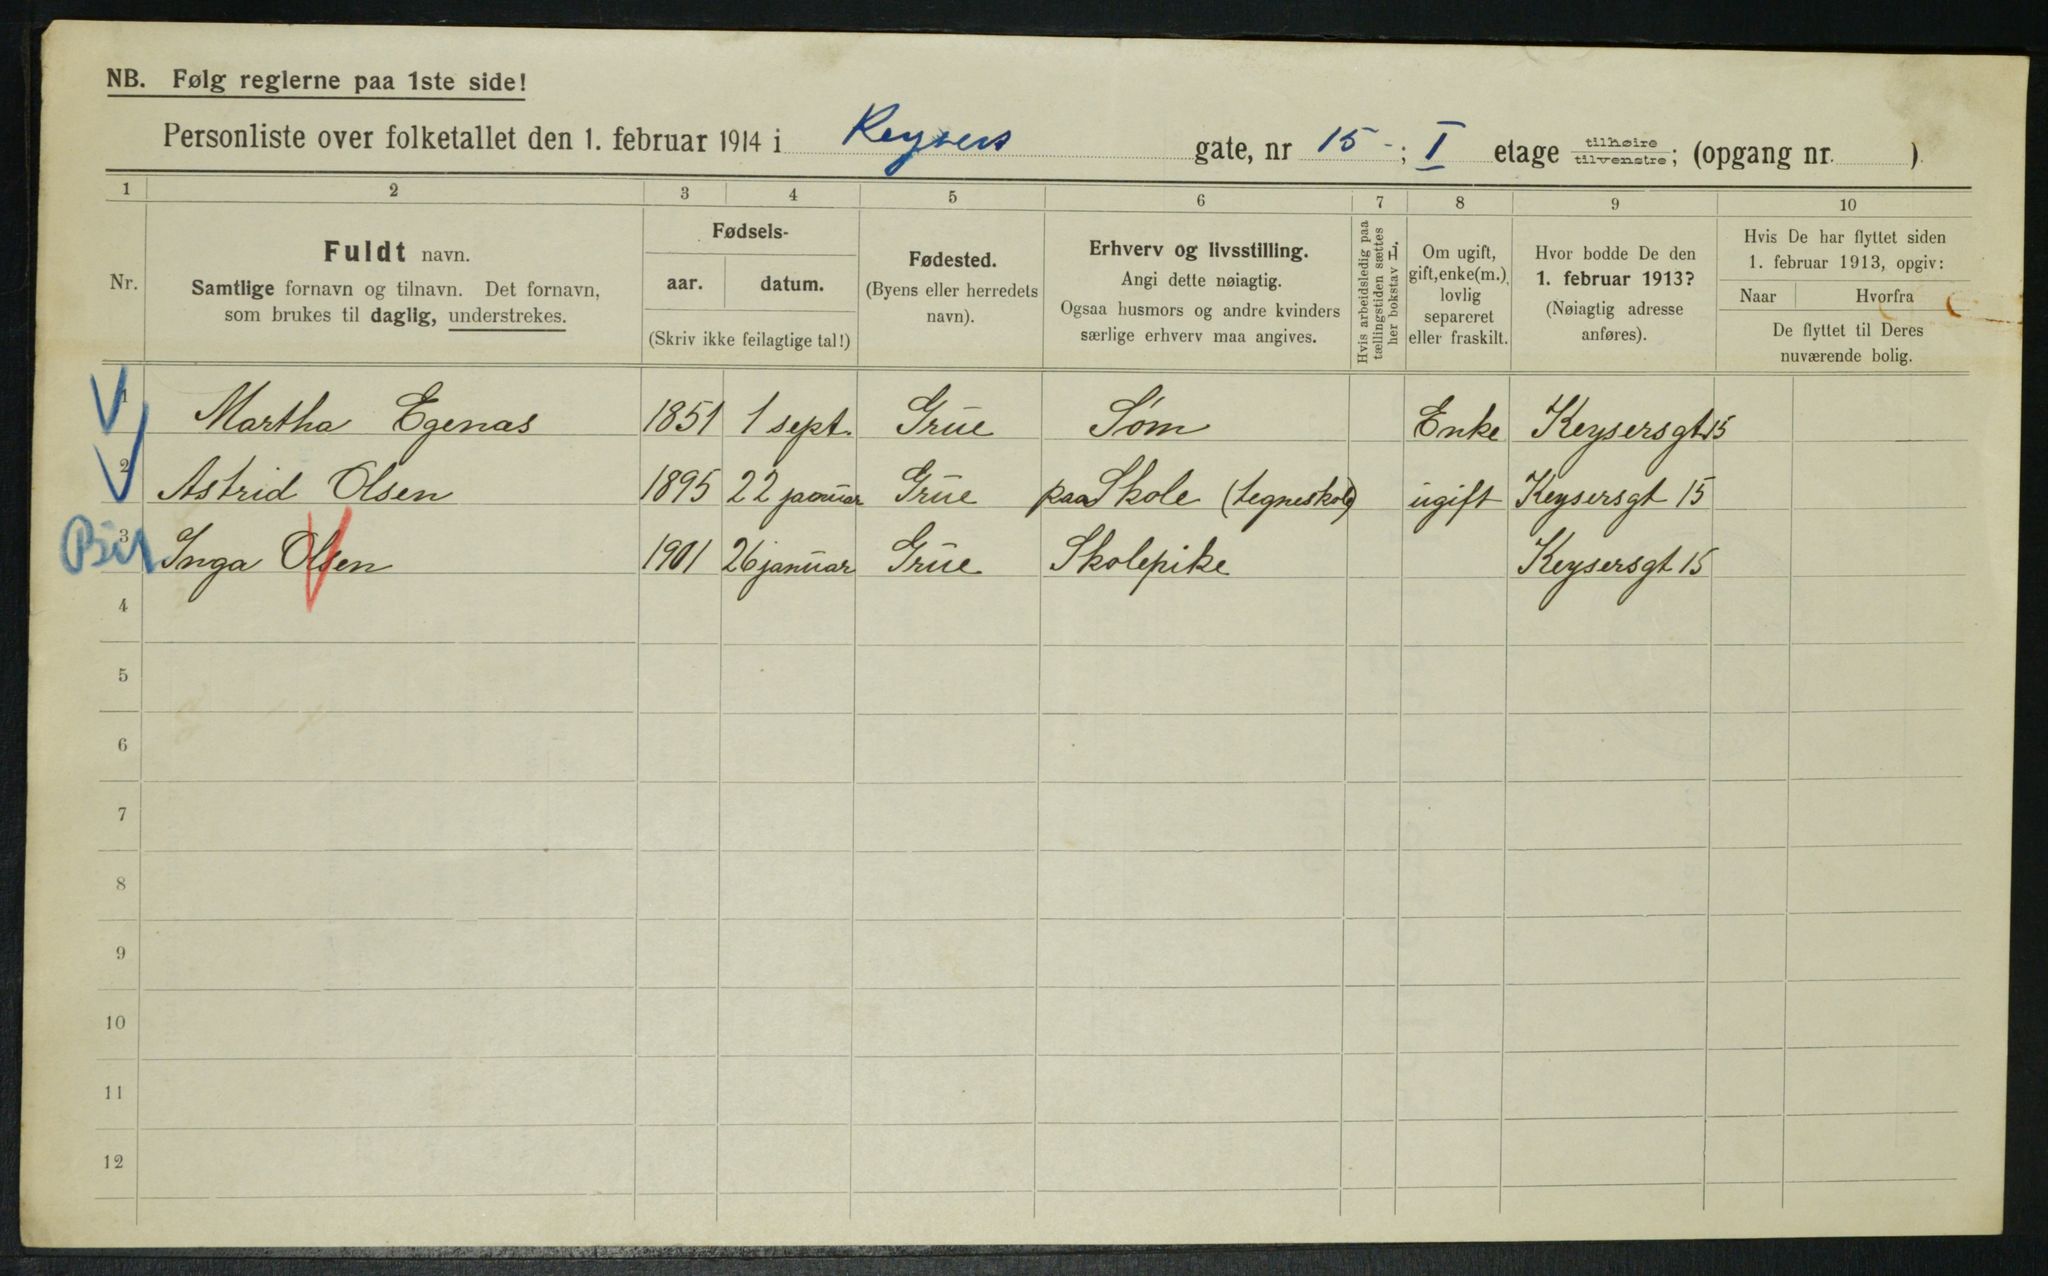 NB. Følg reglerne paa 1ste side!
Personliste over folketallet den 1. februar 1914 i Keysers gate, nr 15 -; I etage tilhøire tilvenstre; (opgang nr. )
1 2 3 4 5 6 7 8 9 10
Nr.
Fuldt navn.
Samtlige fornavn og tilnavn. Det fornavn,
som brukes til daglig, understrekes.
Fødsels-
aar. datum.
(Skriv ikke feilagtige tal!)
Fødested.
(Byens eller herredets
navn).
Erhverv og livsstilling.
Angi dette nøiagtig.
Ogsaa husmors og andre kvinders
særlige erhverv maa angives.
Hvis arbeidsledig paa
tællingstiden sættes
her bokstav L.
Om ugift,
gift, enke(m.),
lovlig
separeret
eller fraskilt.
Hvor bodde De den
1. februar 1913?
(Nøiagtig adresse
anføres).
Hvis De har flyttet siden
1. februar 1913, opgiv:
Naar Hvorfra
De flyttet til Deres
nuværende bolig.
1 Martha Egenas 1851 1 sept. Grue Søm Enke Keysersgt 15
2 Astrid Olsen 1895 22 januar Grue paa Skole (tegneskole) ugift Keysersgt 15
3 Inga Olsen 1901 26 januar Grue Skolepike Keysersgt 15
4
5
6
7
8
9
10
11
12